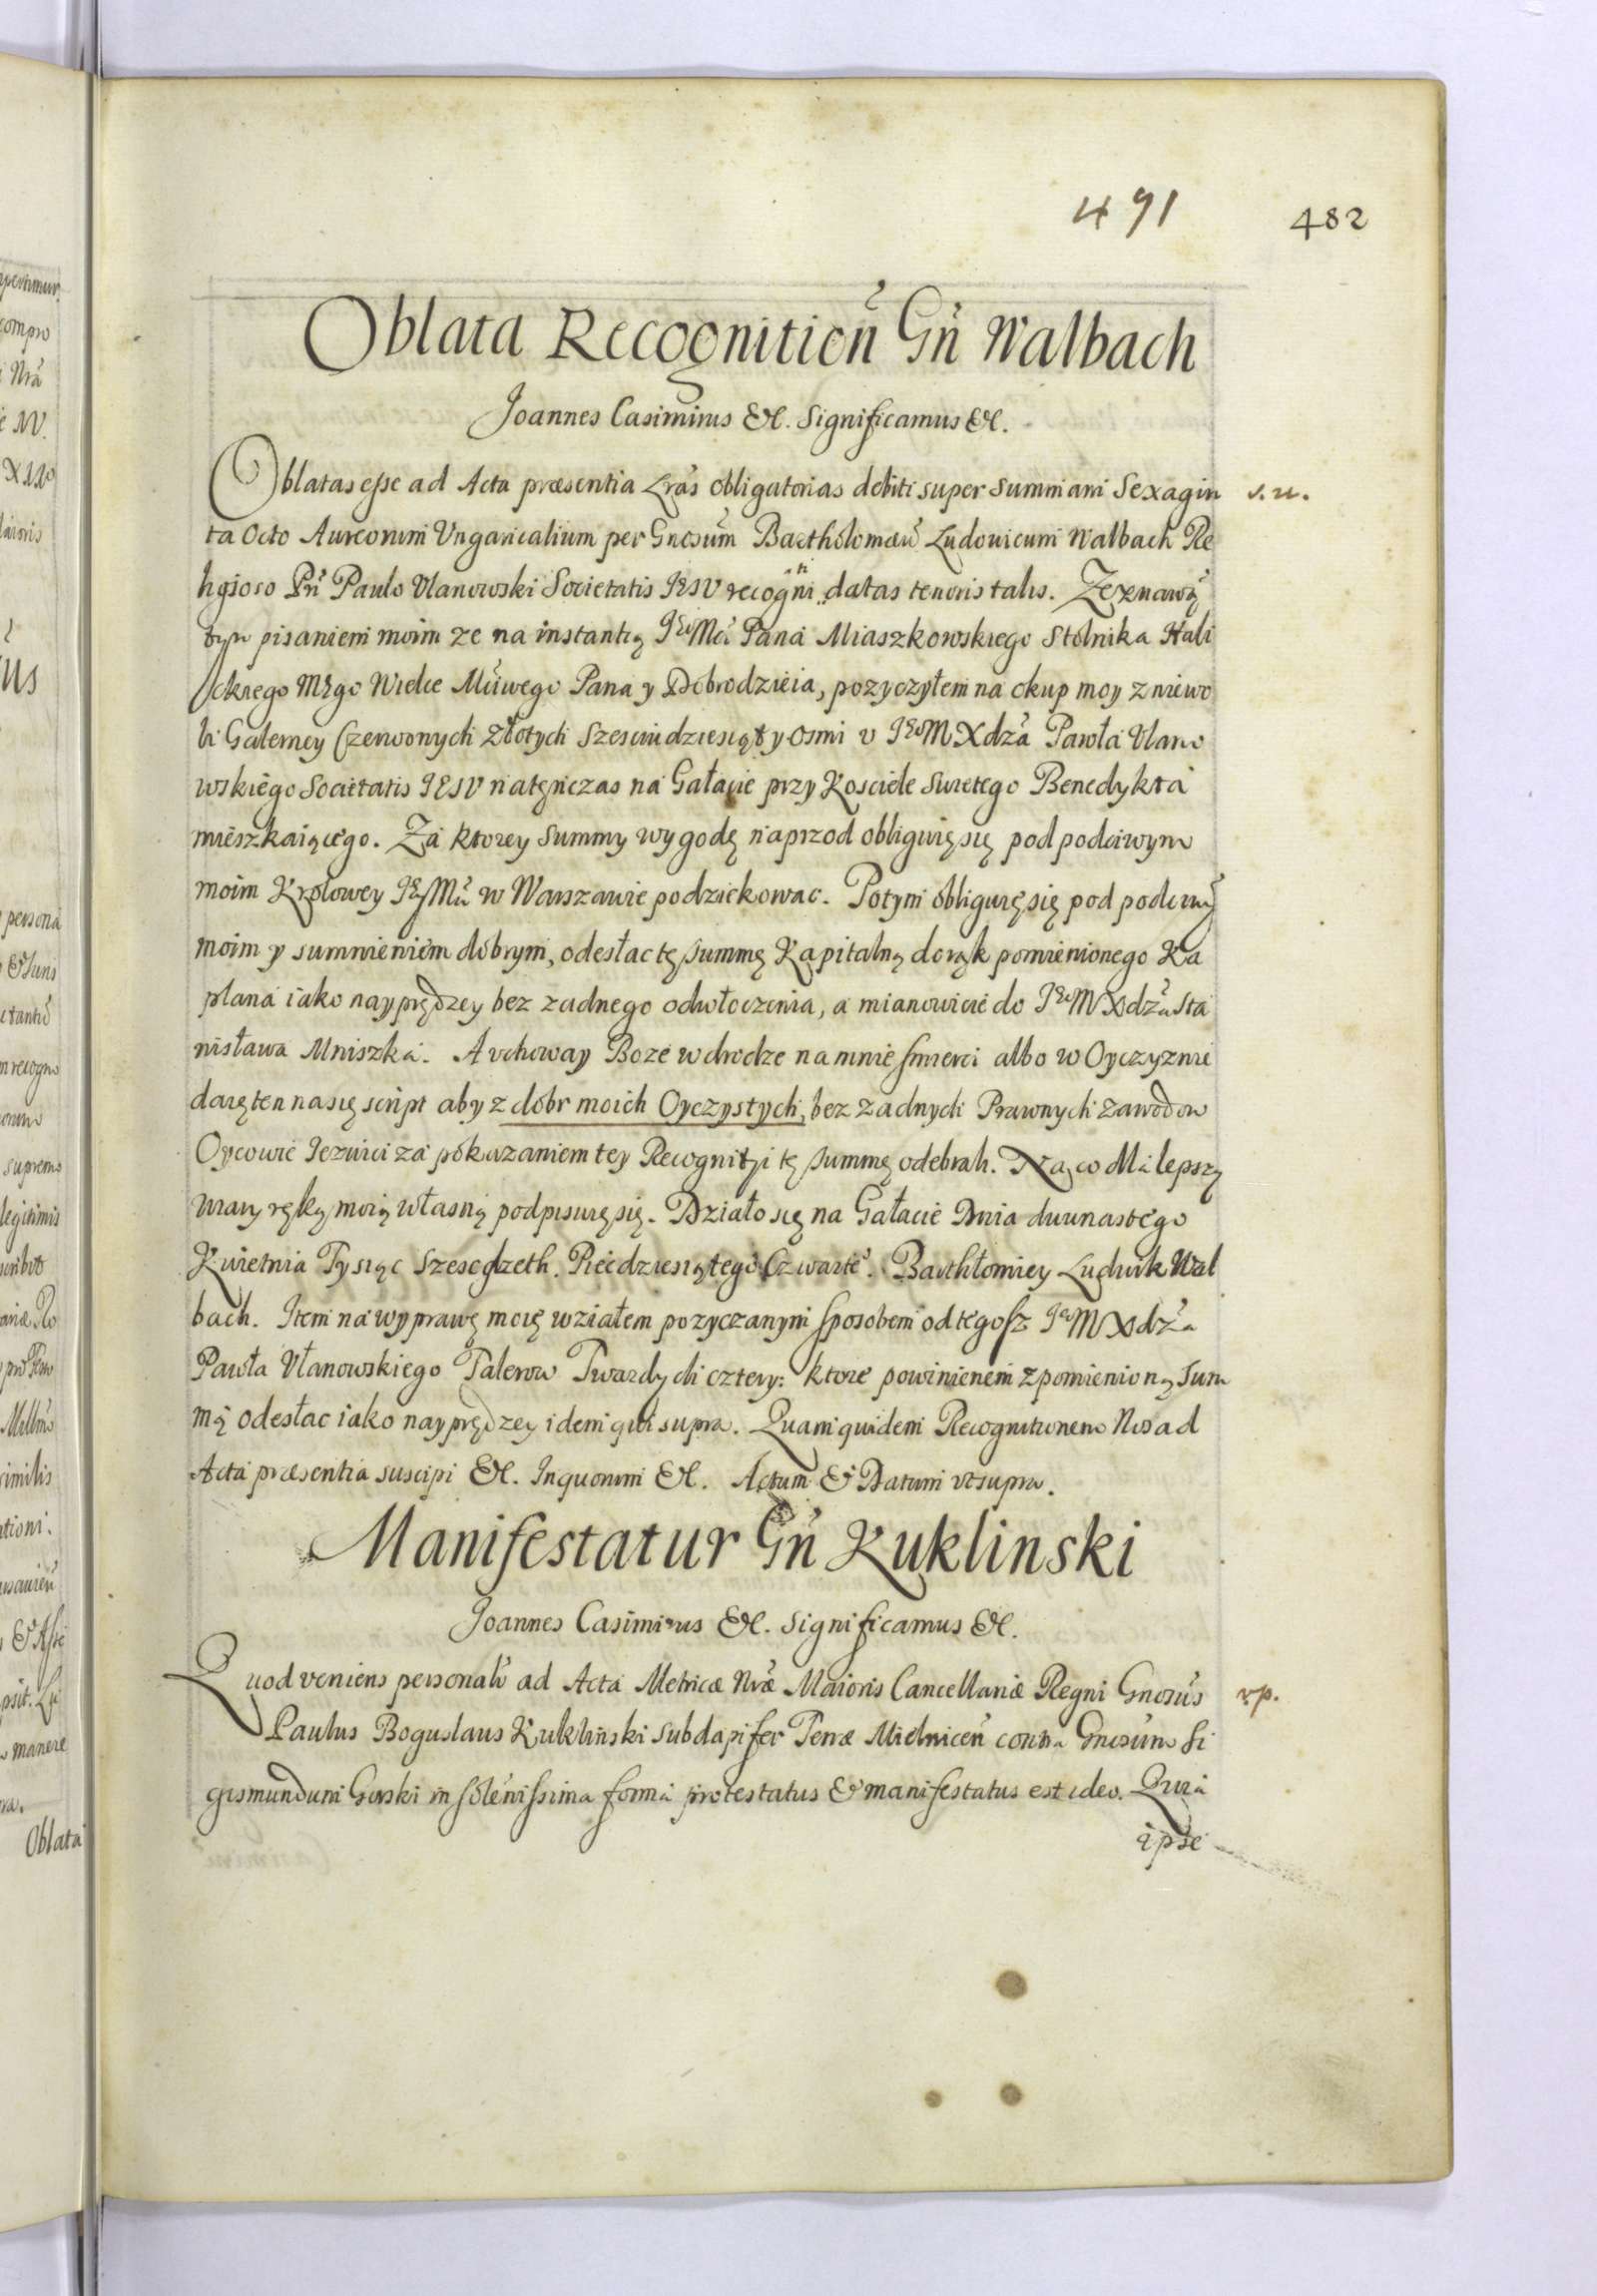 491 482
Oblata Recognitioñ Gñ Walbach
Joannes Casimirus &c. Significamus &c.
Oblatas esse ad Acta præsentia Lrás obligatorias debiti super summam Sexagin s. u.
ta Octo Aureorum Vngaricalium per Gnosum Bartholomæu Ludouicum Walbach Re
ligioso Pri Paulo Vlanowski Societatis IESV recogni datas tenoris talis. Zeznawą
tym pisaniem moim ze na instantią IEo Mci Pana Miaszkowskiego Stolnika Hali
ckiego Mego Wielce Mciwego Pana y Dobrodzieia, pozyczyłem na okup moy z niewo
li Galerney Czerwonych Złotych Szescindziesiąt y osmi v IEo M Xdza Pawła Vlano
wskiego Societatis IESV natęnczas na Gałacie przy Kosciele Swietego Benedykta
mieszkaiącego. Za ktorey Summy wygodę naprzod obliguię się pod podciwym
moim Krolowey IEy Mci w Warszawie podziękowac. Potym obliguię się pod podciwym
moim y sumnieniem dobrym, odesłac tę summę Kapitalną do rąk pomienionego Ka
płana iako nayprędzey bez zadnego odwłoczenia, a mianowicie do IEo M Xdza Sta
nisława Mniszka. A vchoway Boze w drodze na mnie smierci albo w Oyczyznie
daię ten na się script aby z dobr moich Oyczystych, bez zadnych Prawnych zawodow
Oycowie Iezuici za pokazaniem tey Recognitzi tę summę odebrali. Na co dla lepszy
wiary ręką moią własną podpisuię się. Działo się na Gałacie Dnia dwunastego
Kwietnia Tysiąc Szescdzeth. Piećdziesiątego Czwarte. Barthłomiey Ludwik Wal
bach. Item na wyprawę moię wziałem pozyczanym sposobem od tegosz IEo M Xdza
Pawła Vłanowskiego Talerow Twardych cztery: ktore powinienem z pomienioną sum
mą odesłac iako nayprędzey idem qui supra. Quam quidem Recognitionem Nos ad
Acta præsentia suscipi &c. In quorum &c. Actum & Datum vt supra.
Manifestatur Gñ Kuklinski
Joannes Casimirus &c. Significamus &c.
Quod veniens personalr ad Acta Metricæ Nræ Maioris Cancellariæ Regni Gnosus rp.
Paulus Boguslaus Kukliński Subdapifer Terræ Mielniceñ contra Gnosum Si
gismundum Gorski in solenissima forma protestatus & manifestatus est ideo. Quia
ipse